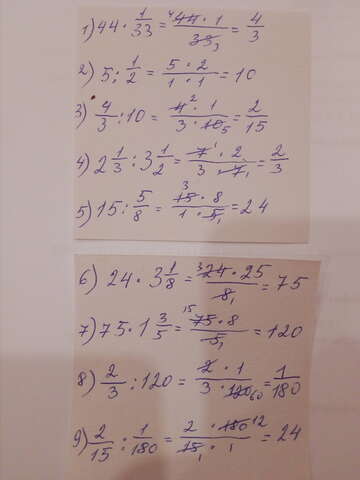 1) 44 · 1/33 = 44 · 1 / 33 = 4/3
2) 5 : 1/2 = 5 · 2 / 1 · 1 = 10
3) 4/3 : 10 = 4 2 · 1 / 3 · 10 5 = 2/15
4) 2 1/3 : 3 1/2 = 7 1 · 2 / 3 · 7 1 = 2/3
5) 15 : 5/8 = 3 15 · 8 / 1 · 5 1 = 24
6) 24 · 3 1/8 = 3 24 · 25 / 8 1 = 75
7) 75 · 1 3/5 = 15 75 · 8 / 5 1 = 120
8) 2/3 : 120 = 2 · 1 / 3 · 120 60 = 1/180
9) 2/15 : 1/180 = 2 · 180 12 / 15 1 · 1 = 24